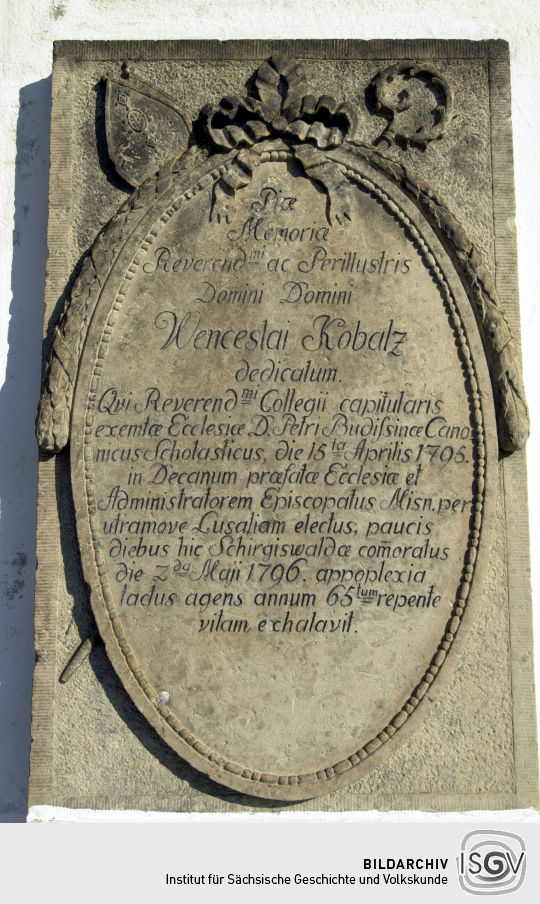 Piæ
Memoriæ
Reverend mi ac Perillustris
Domini Domini
Wenceslai Kobalz
dedicatum.
Qvi Reverend mi Collegii capitularis
exemtæ Ecclesiæ D. Petri Budissinæ Cano-
nicus Scholasticus, die 15 ta Aprilis 1705.
in Decanum præfatæ Ecclesiæ et
Administratorem Episcopatus Misn. per
utramove Lusatiam electus, paucis
diebus hic Schirgiswaldæ com̅oratus
die 2 da Maji 1796. appoplexia
tactus agens annum 65 tum repente
vitam exhalavit.
BILDARCHIV
Institut für Sächsische Geschichte und Volkskunde
ISGV